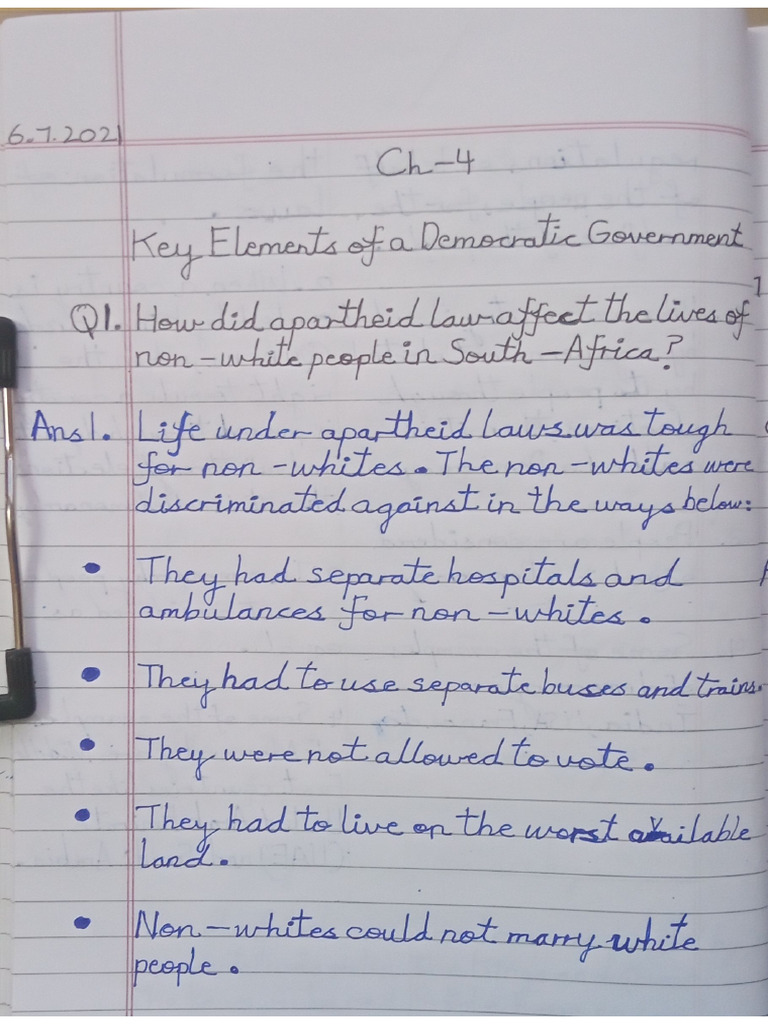 6.7.2021
Ch-4
Key Elements of a Democratic Government
Q1. How did apartheid law affect the lives of
non-white people in South-Africa?
Ans1. Life under apartheid laws was tough
for non-whites. The non-whites were
discriminated against in the ways below:
• They had separate hospitals and
ambulances for non-whites.
• They had to use separate buses and trains.
• They were not allowed to vote.
• They had to live on the worst available
land.
• Non-whites could not marry white
people.